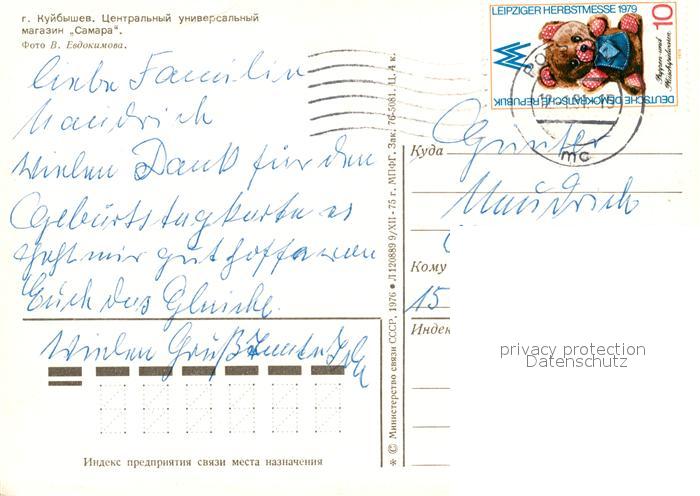 г. Куйбышев. Центральный универсальный
магазин „Самара".
Фото В. Евдокимова.
liebe Familin
Maudrich
Wielen Dank für den
Geburtstagkarte es
geht mir gut hoffe von
Euch das Gleiche.
Wielen Gruß
Индекс предприятия связи места назначения
* © Министерство связи СССР. 1976 • Л 120889 9/XII - 75 г. МПФГ. Зак. 76-5081. 11,4 к.
LEIPZIGER HERBSTMESSE 1979
10
Puppen und
Plüschspielwaren
DEUTSCHE DEMOKRATISCHE REPUBLIK
mc
Куда
Günter
Maudrich
Кому
15
Индек
privacy protection
Datenschutz